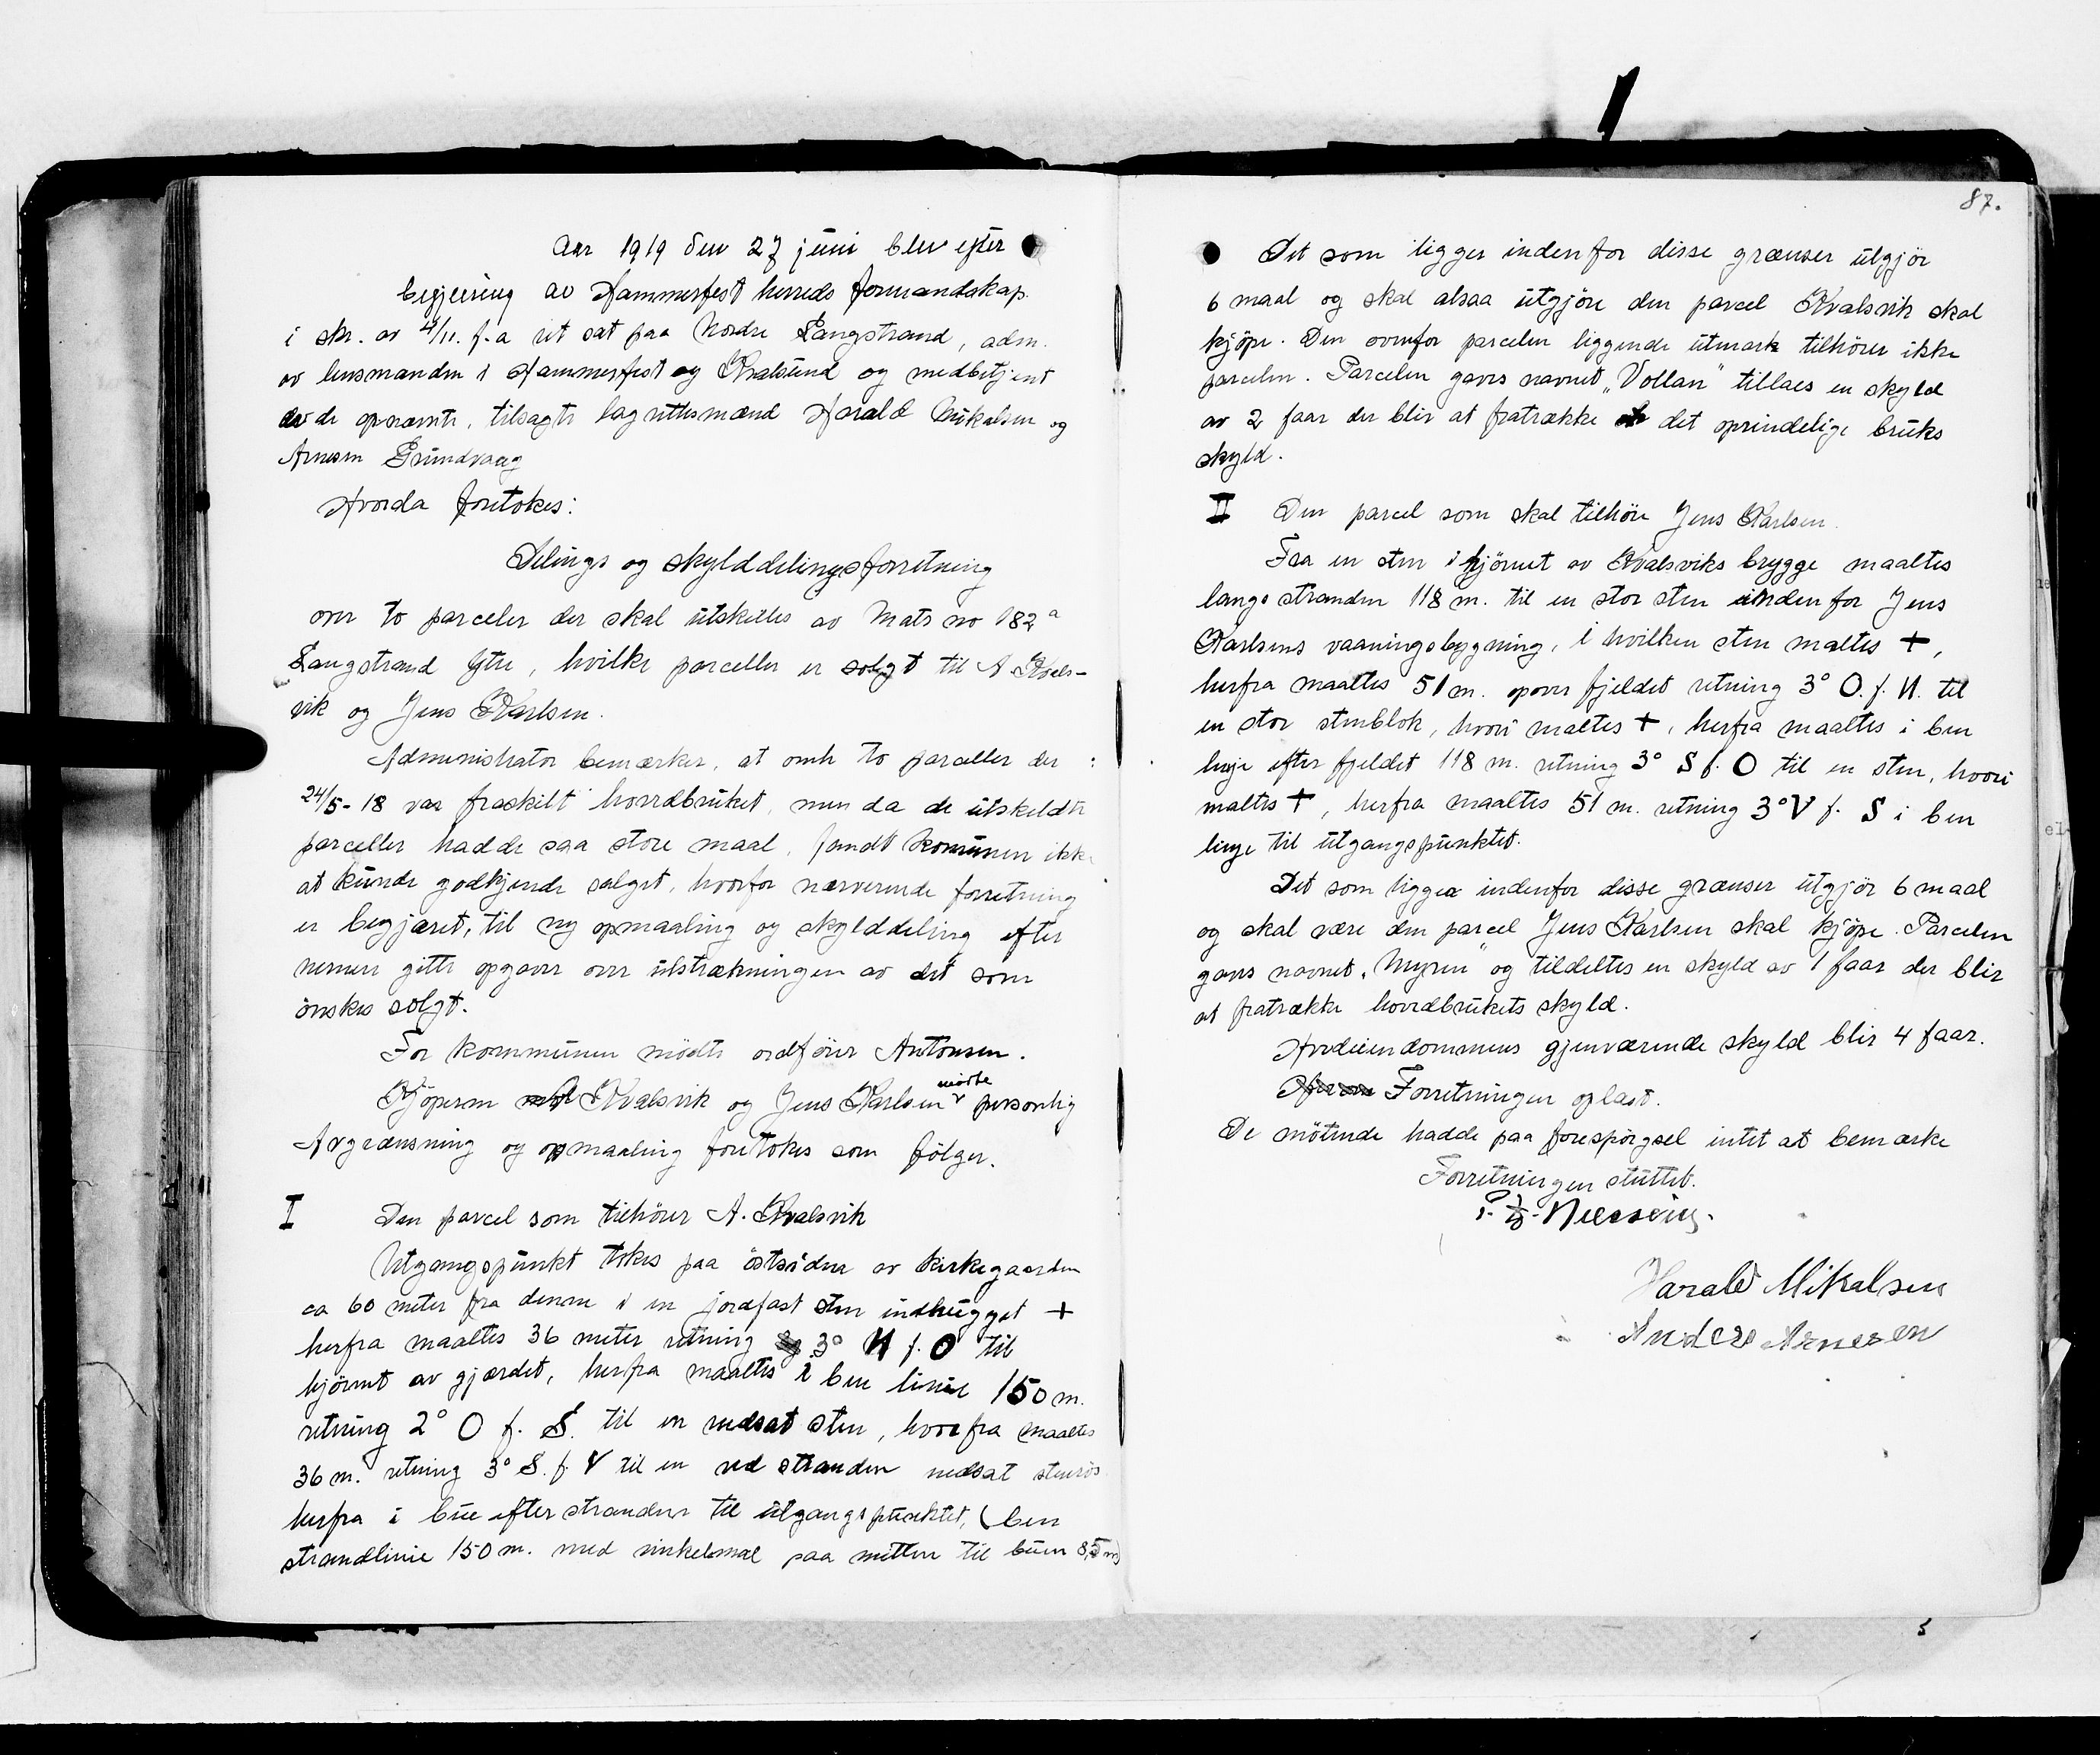 Aar 1919 den 27 juni blev efter
begjæring av Hammerfest herreds formandskap
i skr. av 4/11. f.a ret sat paa Nordre Langstrand, adm.
av lensmanden i Hammerfest og Kvalsund og medbetjent
av de opnævnte, tilsagte lagrettesmænd Harald Mikalsen og
Arnesen Grundvaag
Hvorda foretokes:
Delings og skylddelingsforretning
over to parceler der skal utskilles av Matr no 182 a
Langstrand Ytre, hvilke parceller er solgt til A. Kvals-
vik og Jens Karlsen.
Administrator bemærker, at omh to parceller der
24/5-18 var fraskilt hovedbruket, men da de utskildte
parceller hadde saa store maal, fandt komunen ikke
at kunde godkjende salget, hvorfor nærværende forretning
er begjæret, til ny opmaaling og skylddeling efter
nermere gitte opgaver over utstrækningen av det som
önskes solgt.
For kommunen mödte ordförer Antonsen.
mödte
Kjöperne Kvalsvik og Jens Karlsen v personlig
Avgrænsning og opmaaling foretokes som fölger.
I Den parcel som tilhörer A. Kvalsvik
Utgangspunkt tokes paa östsiden av kirkegaarden
ca 60 meter fra denne i en jordfast sten indhugget +
herfra maaltes 36 meter retning 3° N f. O til
hjörnet av gjærdet, herfra maaltes i ben linie 150 m.
retning 2° O f. S. til en nedsat sten, hvorfra maaltes
36 m. retning 3° S. f. V til en ved stranden nedsat stenrös
herfra i bue efter stranden til utgangspunktet, (ben
strandlinie 150 m. med vinkelmal paa mitten til buen 8,5 m)
87.
Det som ligger indenfor disse grænser utgjör
6 maal og skal alsaa utgjöre den parcel Kvalsvik skal
kjöpe. Den ovenfor parcelen liggende utmark tilhörer ikke
parcelen. Parcelen gaves navnet „Vollan" tillaes en skyld
av 2 faar der blir at fratrække det oprindelige bruks
skyld.
II Den parcel som skal tilhöre Jens Karlsen.
Fra en sten i hjörnet av Kvalsviks brygge maaltes
langs stranden 118 m. til en stor sten indenfor Jens
Karlsens vaaningsbygning, i hvilken sten maltes +,
herfra maaltes 51 m. opover fjeldet retning 3° O. f. N. til
en stor stenblok, hvori maltes +, herfra maaltes i ben
linje efter fjeldet 118 m. retning 3° S f. O til en sten, hvori
maltes +, herfra maaltes 51 m. retning 3° V f. S i ben
linje til utgangspunktet.
Det som ligger indenfor disse grænser utgjör 6 maal
og skal være den parcel Jens Karlsen skal kjöpe. Parcelen
gaves navnet „Myren" og tildeltes en skyld av 1 faar der blir
at fratrække hovedbrukets skyld.
Hovedeiendommens gjenværende skyld blir 4 faar.
Forretningen oplæst.
De mötende hadde paa forespörgsel intet at bemærke
Forretningen sluttet.
Harald Mikalsen
Anders Arnesen